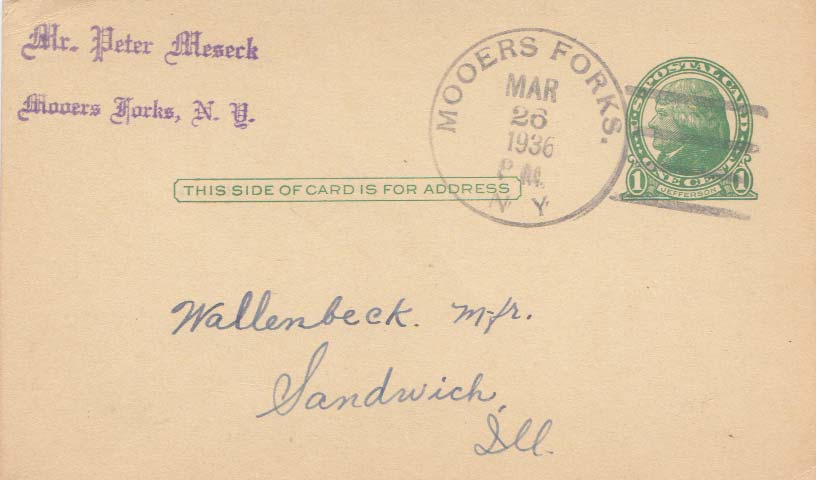 Mr. Peter Meseck
Mooers Forks, N. Y.
MOOERS FORKS.
MAR
26
1936
P M.
N Y
U.S. POSTAL CARD
ONE CENT
1 JEFFERSON 1
THIS SIDE OF CARD IS FOR ADDRESS
Wallenbeck. Mfr.
Sandwich,
Ill.